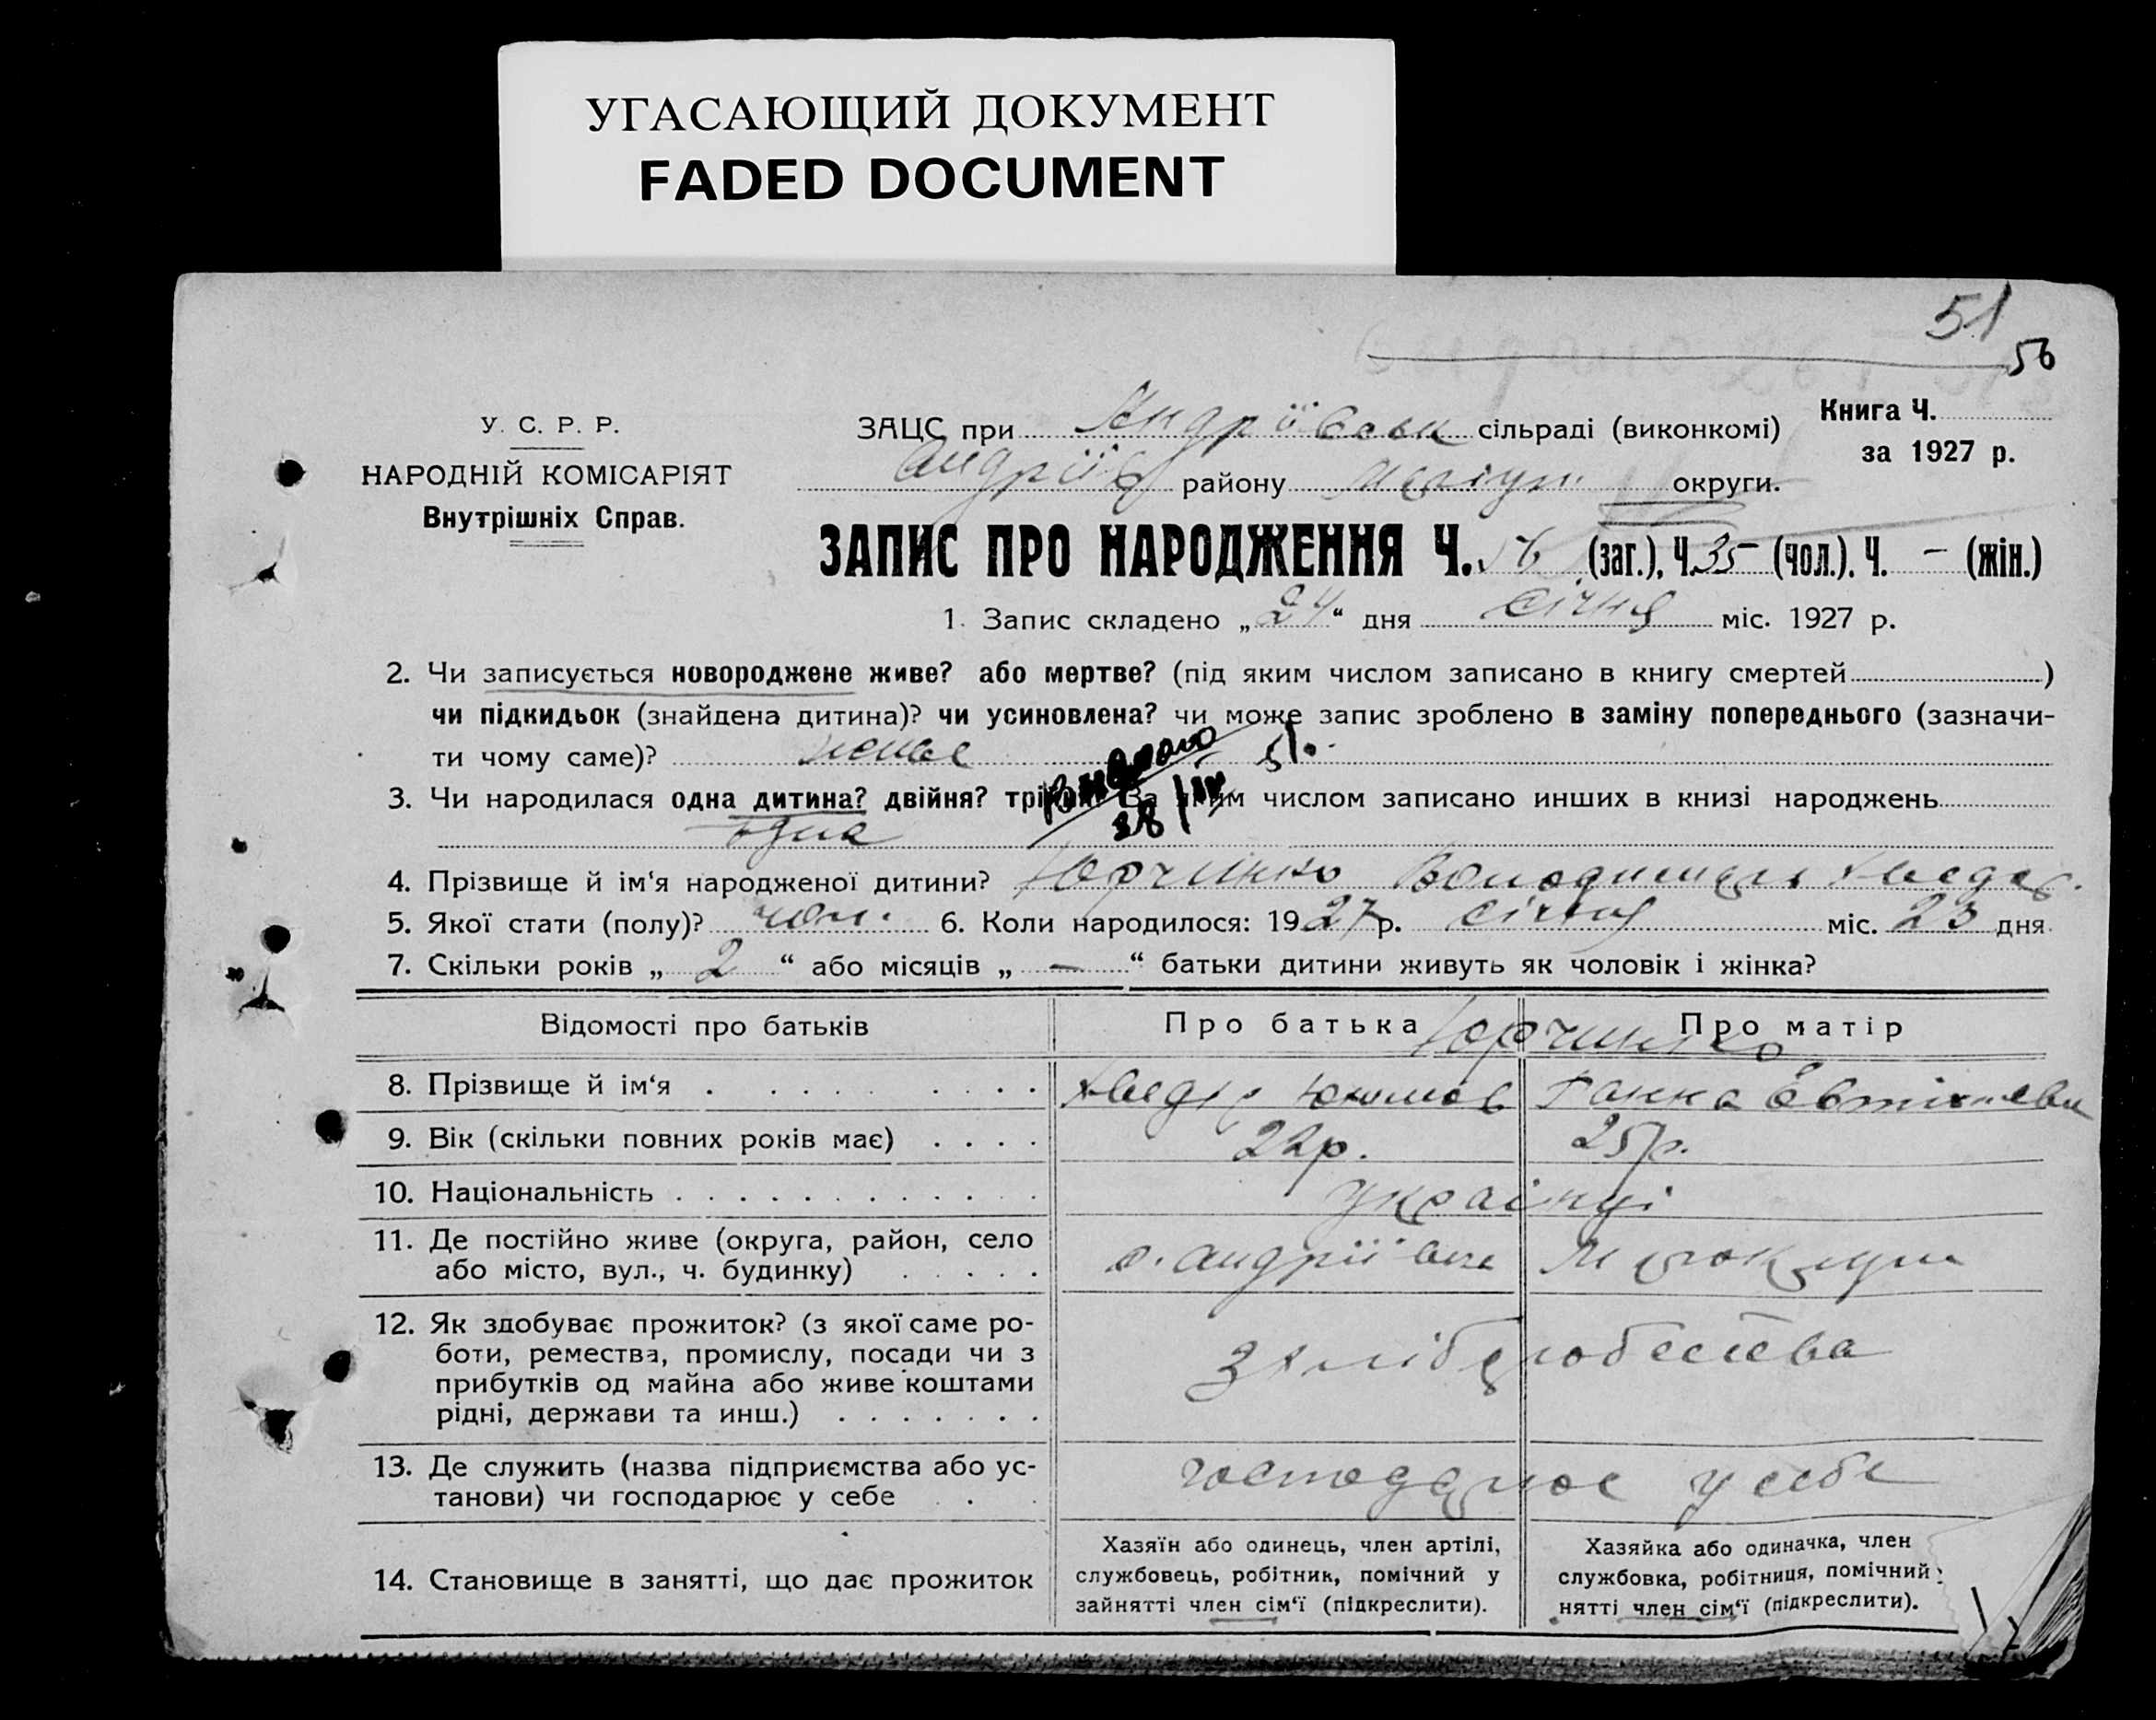 УГАСАЮЩИЙ ДОКУМЕНТ
FADED DOCUMENT
51
56
У. С. Р. Р.
НАРОДНІЙ КОМІСАРІЯТ
Внутрішніх Справ.
ЗАЦС при Андріївськ сільраді (виконкомі)
Андріїв району Маріуп. округи.
Книга Ч.
за 1927 р.
ЗАПИС ПРО НАРОДЖЕННЯ Ч. 56 (заг.), Ч. 35 (чол.). Ч. – (жін.)
1. Запис складено „24“ дня січня міс. 1927 р.
2. Чи записується новороджене живе? або мертве? (під яким числом записано в книгу смертей )
чи підкидьок (знайдена дитина)? чи усиновлена? чи може запис зроблено в заміну попереднього (зазначи-
ти чому саме)? живе
3. Чи народилася одна дитина? двійня? трійня? За яким числом записано инших в книзі народжень
одна
4. Прізвище й ім‘я народженої дитини? Юрченко Володимир Хведор.
5. Якої стати (полу)? чол. 6. Коли народилося: 1927 р. січня міс. 23 дня
7. Скільки років „ 2 “ або місяців „ — “ батьки дитини живуть як чоловік і жінка?
Відомості про батьків Про батька Про матір
Юрченко
8. Прізвище й ім‘я Хведір Юхимов Ганна
9. Вік (скільки повних років має) 22р. 25р.
10. Національність українці
11. Де постійно живе (округа, район, село
або місто, вул., ч. будинку) с. Андріївка
12. Як здобуває прожиток? (з якої саме ро-
боти, ремества, промислу, посади чи з
прибутків од майна або живе коштами
рідні, держави та инш.)
З хліборобства
13. Де служить (назва підприємства або ус-
танови) чи господарює у себе
господарює у себе
14. Становище в занятті, що дає прожиток
Хазяїн або одинець, член артілі,
службовець, робітник, помічний у
зайнятті член сім‘ї (підкреслити).
Хазяйка або одиначка, член
службовка, робітниця, помічний
нятті член сім‘ї (підкреслити).